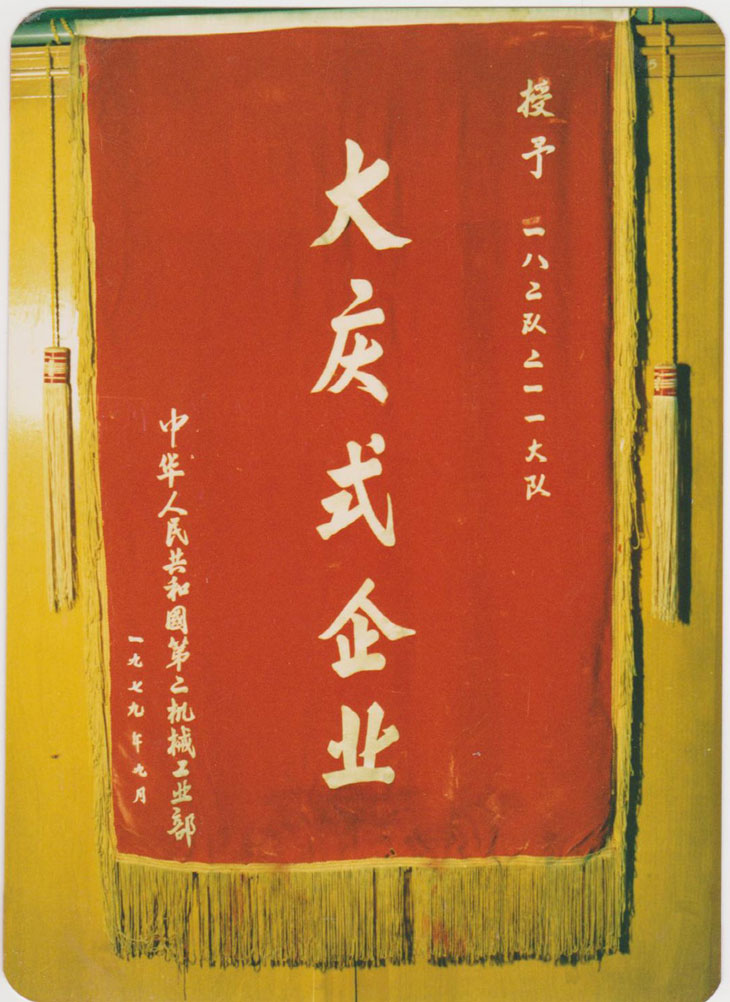 授予 一八二队二一一大队
大庆式企业
中华人民共和國第二机械工业部
一九七九年九月